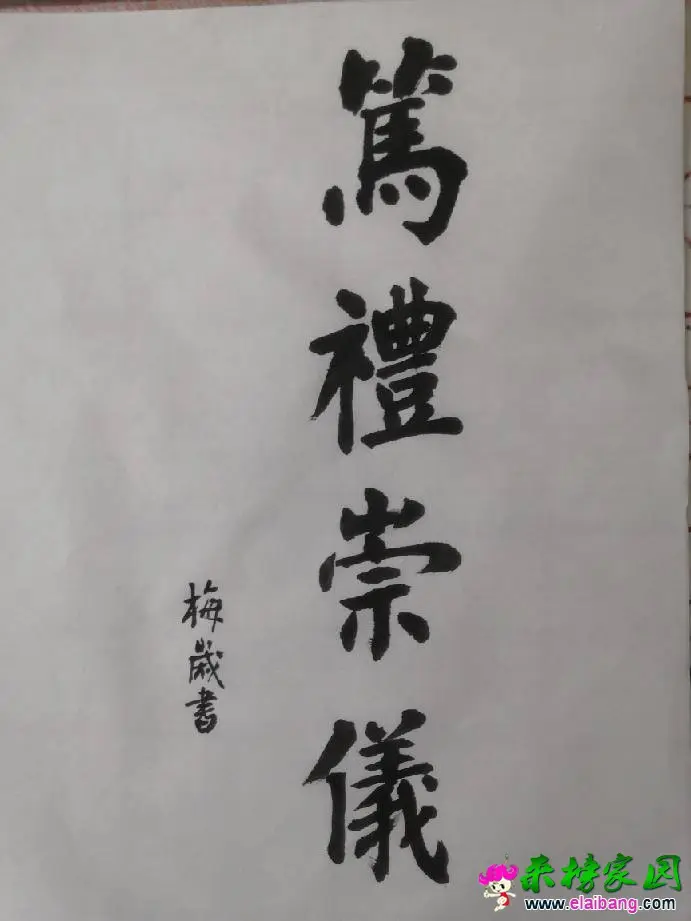 篤禮崇儀
梅歲書
来榜家园
www.elaibang.com